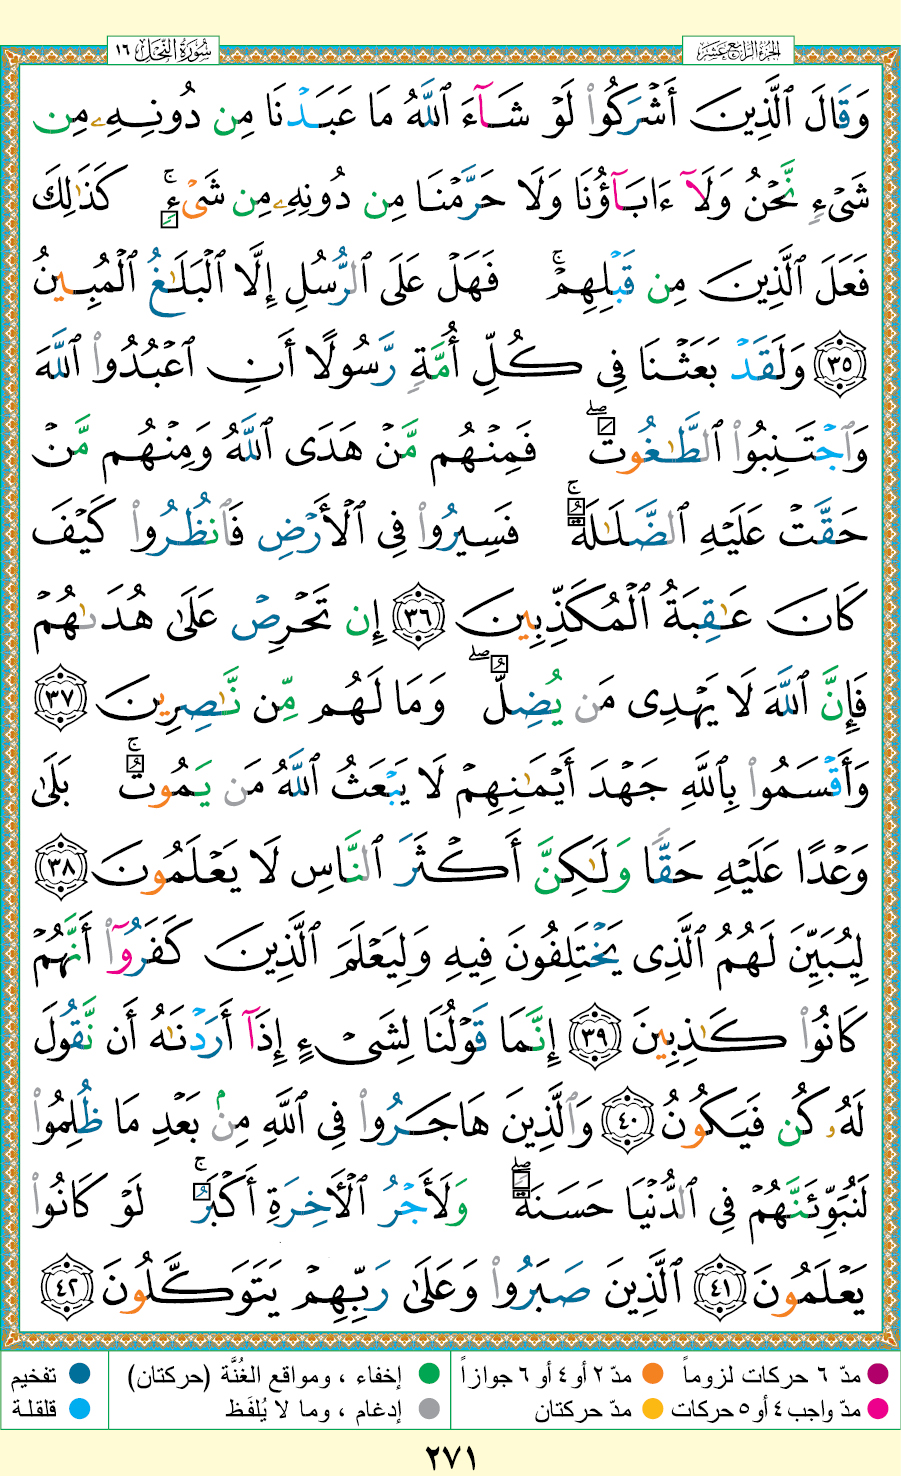 سُورَةُ النَّحْلِ ١٦
الجُزءُ الرَّابِعُ عَشَرَ
وَقَالَ ٱلَّذِينَ أَشْرَكُوا۟ لَوْ شَآءَ ٱللَّهُ مَا عَبَدْنَا مِن دُونِهِۦ مِن
شَىْءٍ نَّحْنُ وَلَآ ءَابَآؤُنَا وَلَا حَرَّمْنَا مِن دُونِهِۦ مِن شَىْءٍ ۚ كَذَٰلِكَ
فَعَلَ ٱلَّذِينَ مِن قَبْلِهِمْ ۚ فَهَلْ عَلَى ٱلرُّسُلِ إِلَّا ٱلْبَلَٰغُ ٱلْمُبِينُ
٣٥ وَلَقَدْ بَعَثْنَا فِى كُلِّ أُمَّةٍ رَّسُولًا أَنِ ٱعْبُدُوا۟ ٱللَّهَ
وَٱجْتَنِبُوا۟ ٱلطَّٰغُوتَ ۖ فَمِنْهُم مَّنْ هَدَى ٱللَّهُ وَمِنْهُم مَّنْ
حَقَّتْ عَلَيْهِ ٱلضَّلَٰلَةُ ۚ فَسِيرُوا۟ فِى ٱلْأَرْضِ فَٱنظُرُوا۟ كَيْفَ
كَانَ عَٰقِبَةُ ٱلْمُكَذِّبِينَ ٣٦ إِن تَحْرِصْ عَلَىٰ هُدَىٰهُمْ
فَإِنَّ ٱللَّهَ لَا يَهْدِى مَن يُضِلُّ ۖ وَمَا لَهُم مِّن نَّٰصِرِينَ ٣٧
وَأَقْسَمُوا۟ بِٱللَّهِ جَهْدَ أَيْمَٰنِهِمْ لَا يَبْعَثُ ٱللَّهُ مَن يَمُوتُ ۚ بَلَىٰ
وَعْدًا عَلَيْهِ حَقًّا وَلَٰكِنَّ أَكْثَرَ ٱلنَّاسِ لَا يَعْلَمُونَ ٣٨
لِيُبَيِّنَ لَهُمُ ٱلَّذِى يَخْتَلِفُونَ فِيهِ وَلِيَعْلَمَ ٱلَّذِينَ كَفَرُوٓا۟ أَنَّهُمْ
كَانُوا۟ كَٰذِبِينَ ٣٩ إِنَّمَا قَوْلُنَا لِشَىْءٍ إِذَآ أَرَدْنَٰهُ أَن نَّقُولَ
لَهُۥ كُن فَيَكُونُ ٤٠ وَٱلَّذِينَ هَاجَرُوا۟ فِى ٱللَّهِ مِنۢ بَعْدِ مَا ظُلِمُوا۟
لَنُبَوِّئَنَّهُمْ فِى ٱلدُّنْيَا حَسَنَةً ۖ وَلَأَجْرُ ٱلْءَاخِرَةِ أَكْبَرُ ۚ لَوْ كَانُوا۟
يَعْلَمُونَ ٤١ ٱلَّذِينَ صَبَرُوا۟ وَعَلَىٰ رَبِّهِمْ يَتَوَكَّلُونَ ٤٢
مدّ ٦ حركات لزوماً مدّ ٢ أو ٤ أو ٦ جوازاً إخفاء ، ومواقع الغُنَّة (حركتان) تفخيم
مدّ واجب ٤ أو ٥ حركات مدّ حركتان إدغام ، وما لا يُلفَظ قلقلة
٢٧١